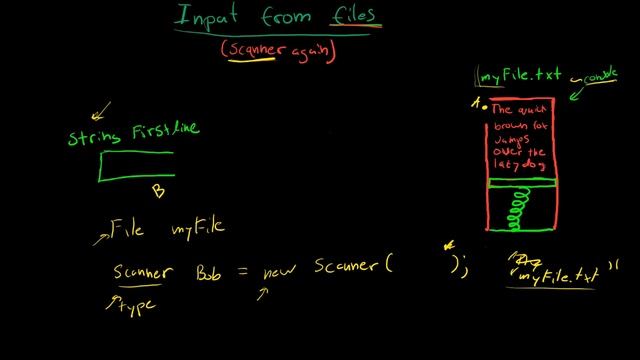 Input from files
(Scanner again)
myFile.txt ~ console
A.
The quick
brown fox
Jumps
over the
lazy dog
String Firstline
B
File myFile
Scanner Bob = new Scanner( );
type
"myFile.txt"